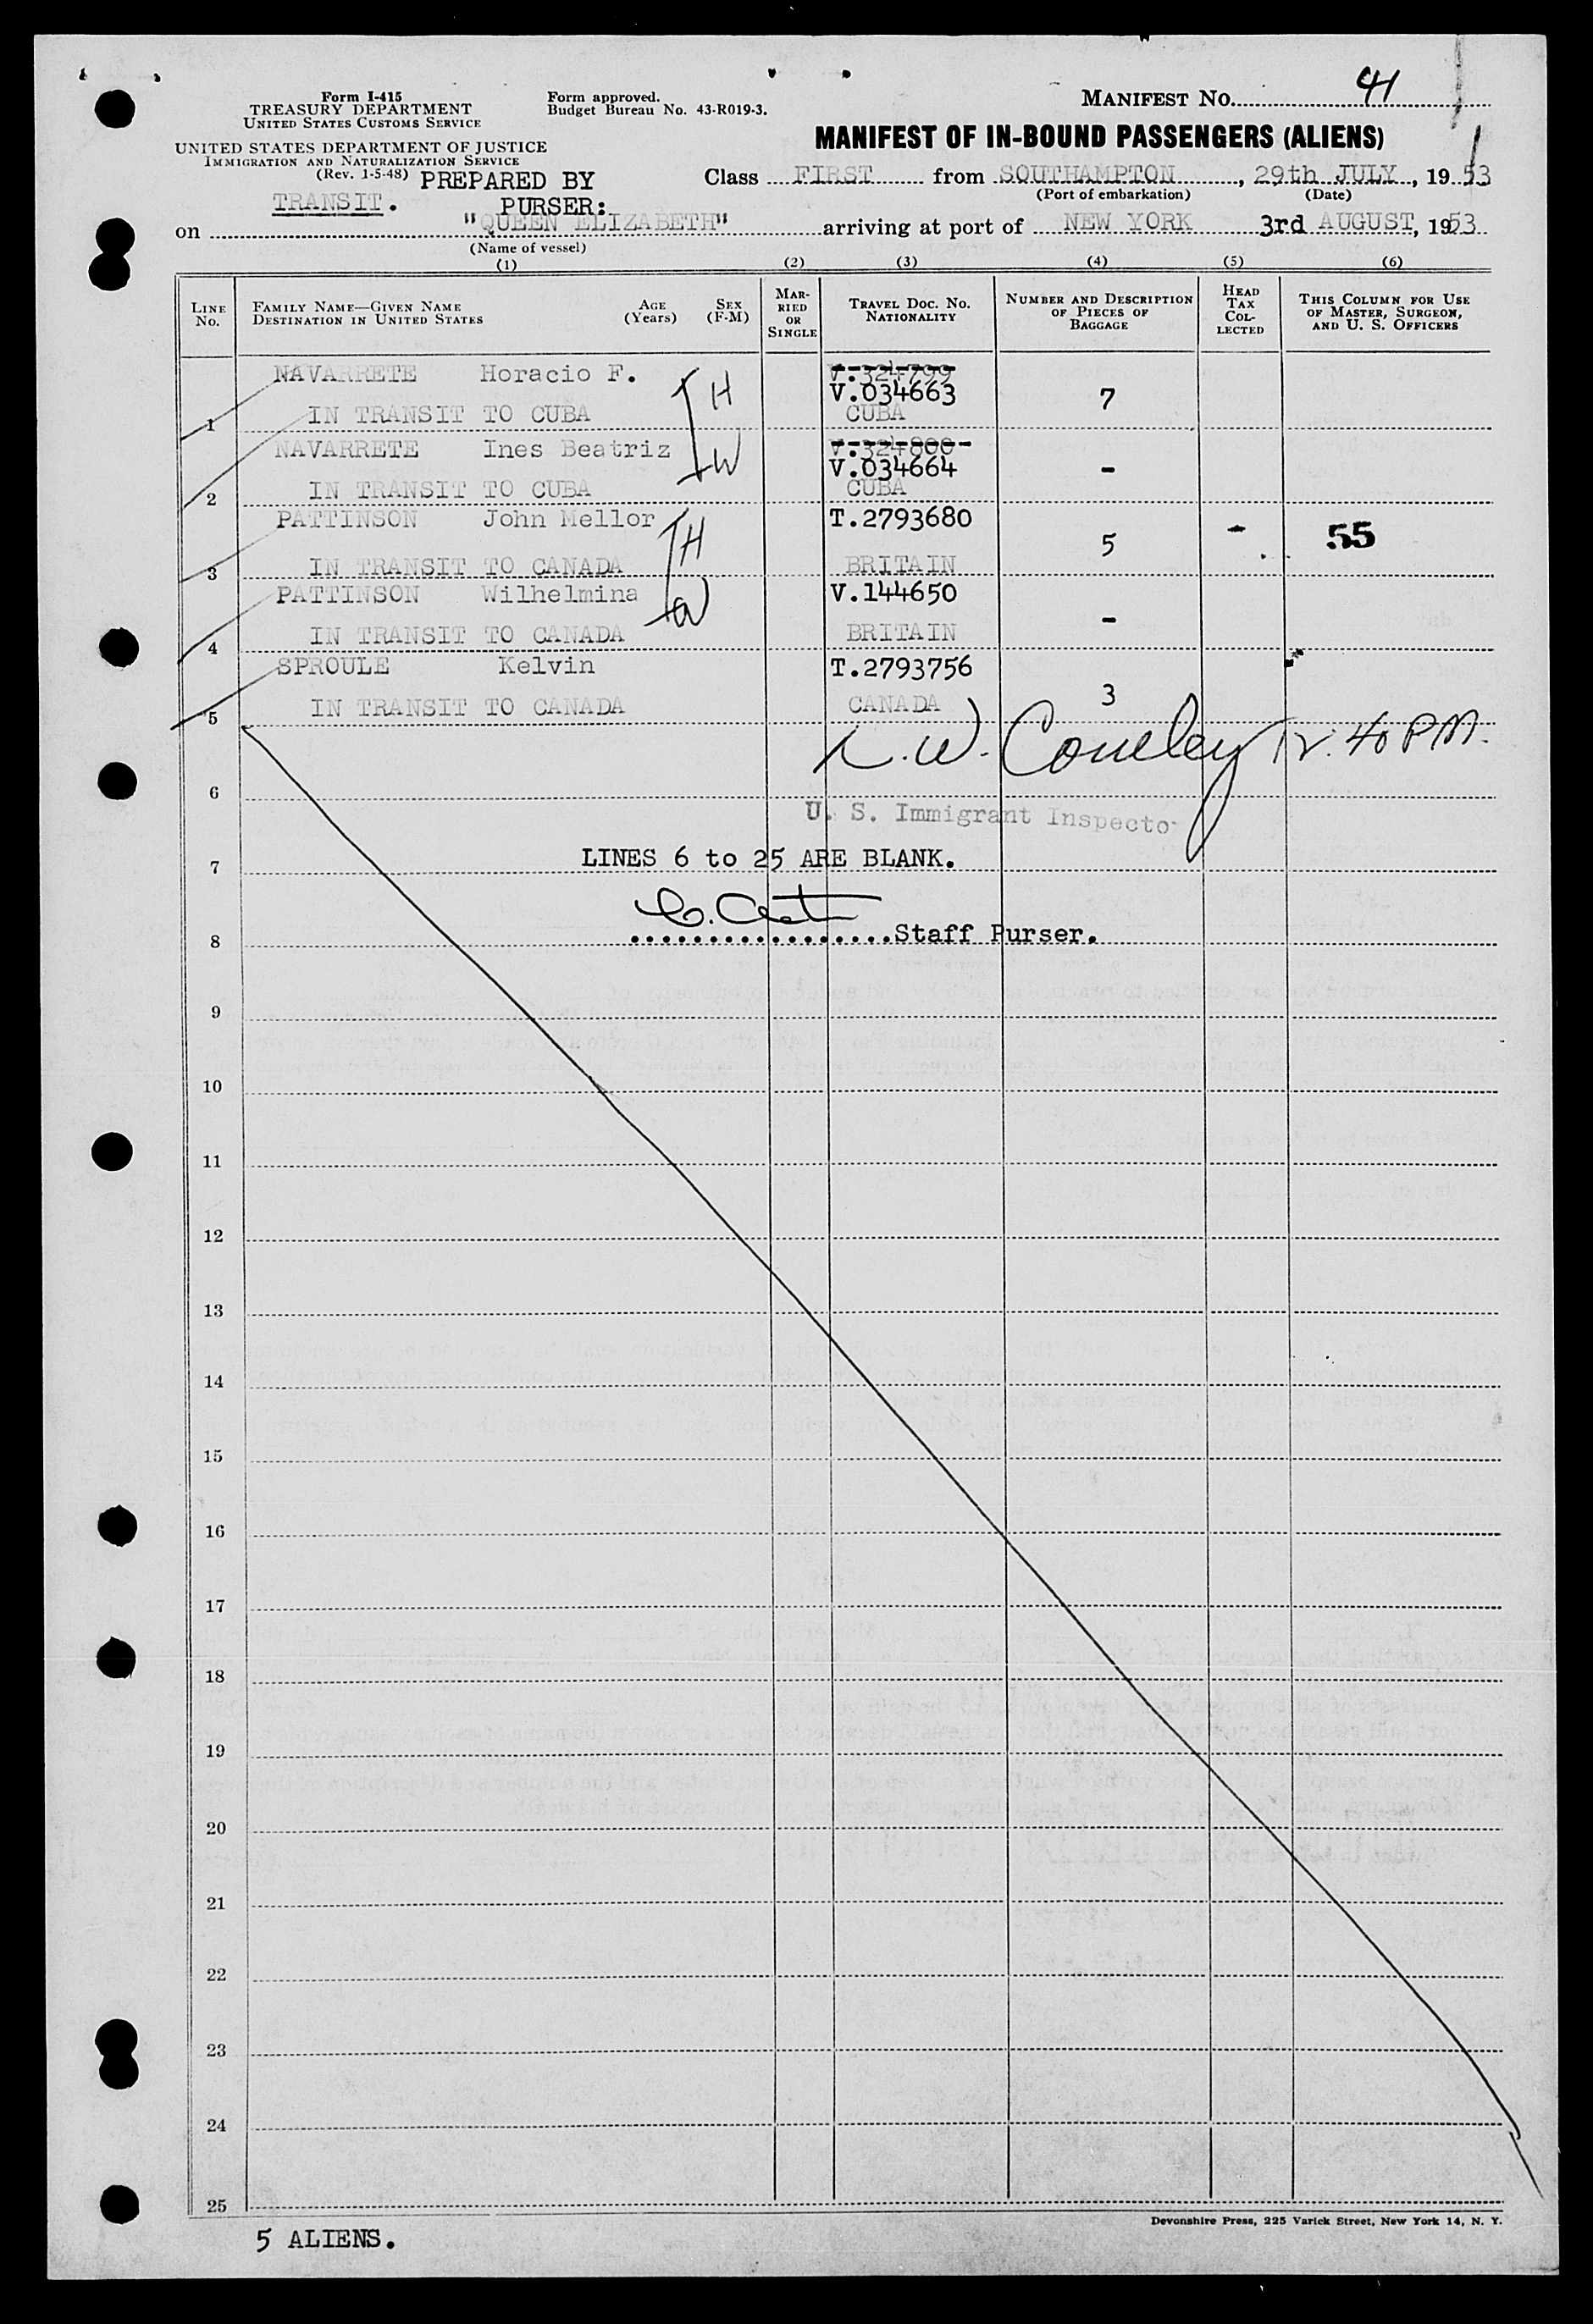 Form I-415
TREASURY DEPARTMENT
UNITED STATES CUSTOMS SERVICE
Form approved.
Budget Bureau No. 43-R019-3.
MANIFEST NO. 41
UNITED STATES DEPARTMENT OF JUSTICE
IMMIGRATION AND NATURALIZATION SERVICE
(Rev. 1-5-48)
MANIFEST OF IN-BOUND PASSENGERS (ALIENS)
1
PREPARED BY
PURSER:
TRANSIT.
Class FIRST from SOUTHAMPTON, 29th JULY, 1953
(Port of embarkation) (Date)
on "QUEEN ELIZABETH" arriving at port of NEW YORK 3rd AUGUST, 1953
(Name of vessel)
(1) (2) (3) (4) (5) (6)
LINE No.
FAMILY NAME—GIVEN NAME
DESTINATION IN UNITED STATES
AGE (Years)
SEX (F-M)
MARRIED OR SINGLE
TRAVEL DOC. NO.
NATIONALITY
NUMBER AND DESCRIPTION OF PIECES OF BAGGAGE
HEAD TAX COLLECTED
THIS COLUMN FOR USE OF MASTER, SURGEON, AND U. S. OFFICERS
NAVARRETE Horacio F. H V.324799
V.034663 7
1 IN TRANSIT TO CUBA CUBA
NAVARRETE Ines Beatriz W V.324800-
V.034664 -
2 IN TRANSIT TO CUBA CUBA
PATTINSON John Mellor H T.2793680 5 - 55
3 IN TRANSIT TO CANADA BRITAIN
PATTINSON Wilhelmina W V.144650 -
4 IN TRANSIT TO CANADA BRITAIN
SPROULE Kelvin T.2793756 3
5 IN TRANSIT TO CANADA CANADA
12.40 PM.
6
U. S. Immigrant Inspector
LINES 6 to 25 ARE BLANK.
7
8 Staff Purser.
9
10
11
12
13
14
15
16
17
18
19
20
21
22
23
24
25
5 ALIENS.
Devonshire Press, 225 Varick Street, New York 14, N. Y.